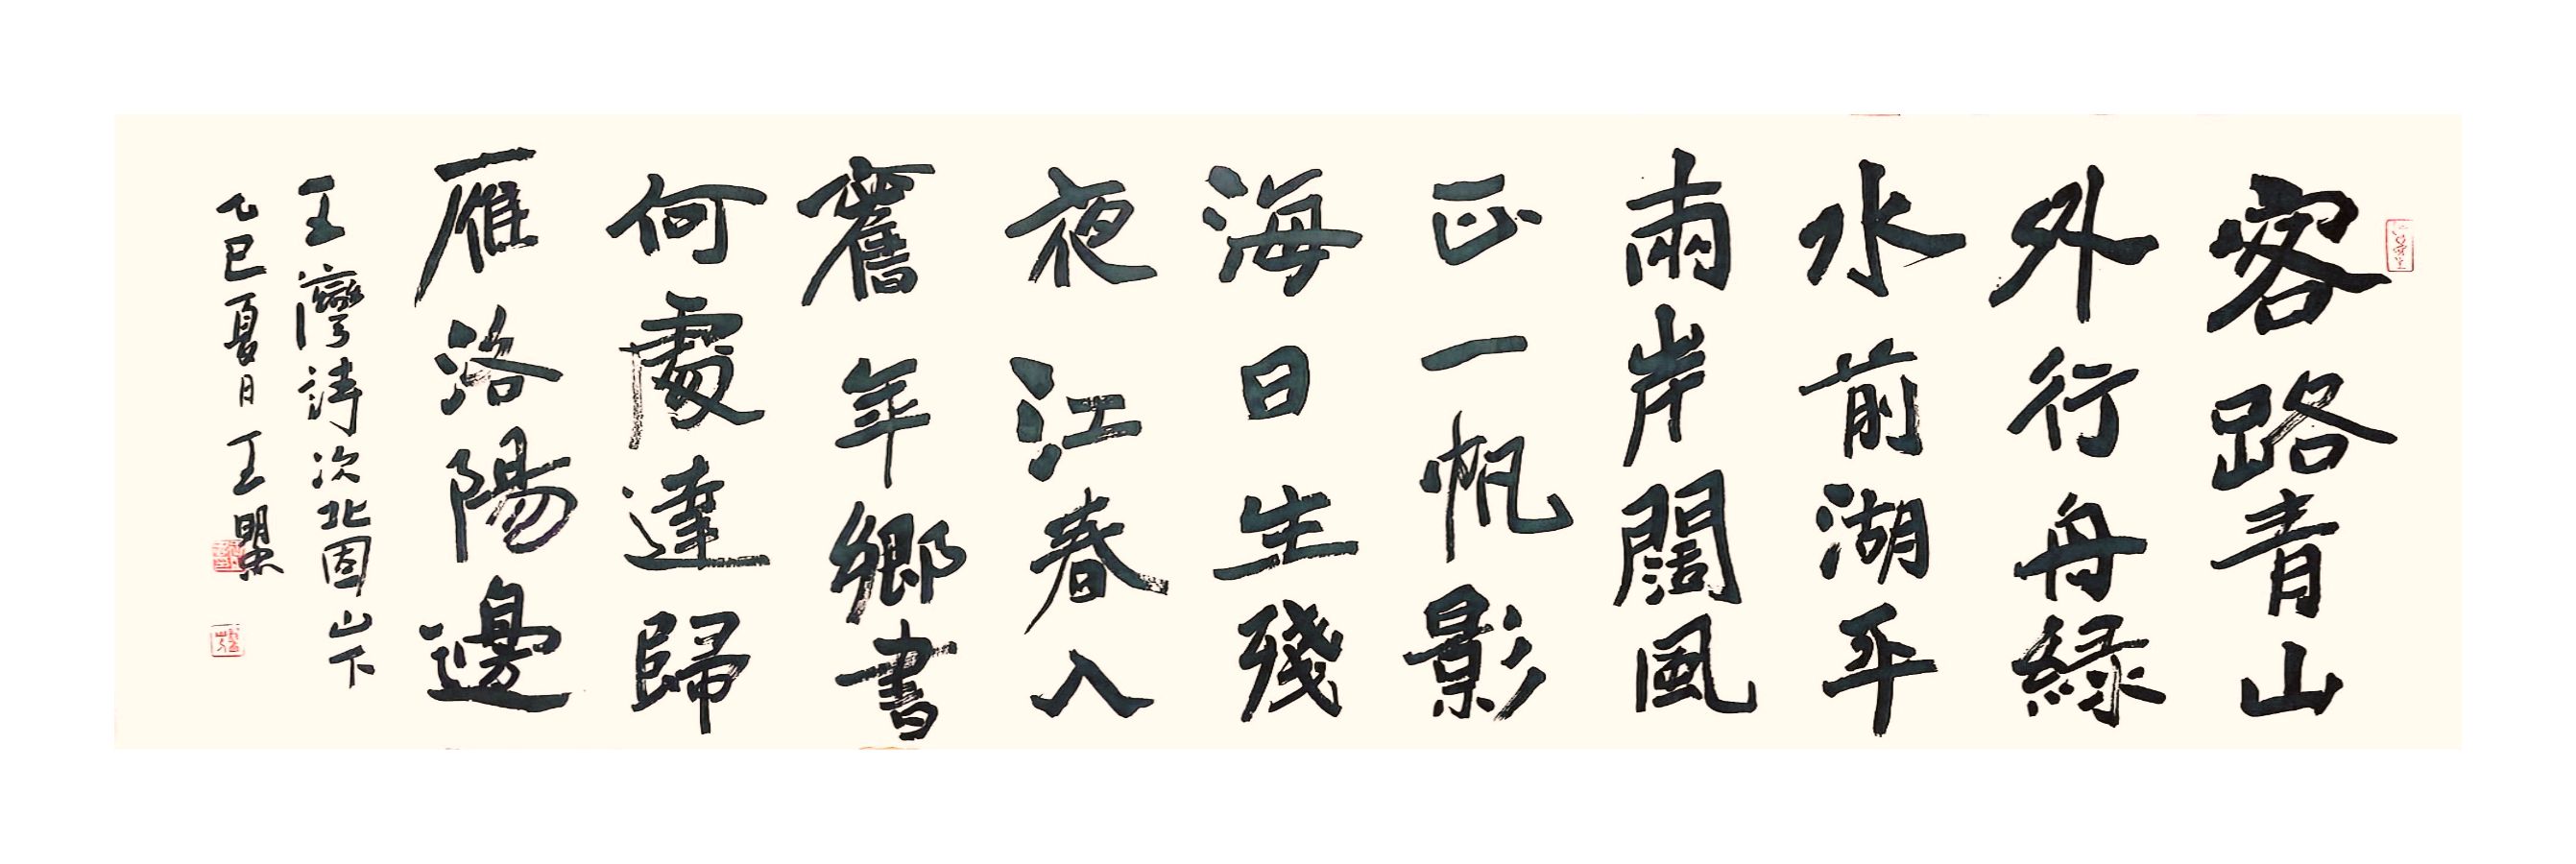 客路青山
外行舟綠
水前湖平
兩岸闊風
正一帆影
海日生殘
夜江春入
舊年鄉書
何處達歸
雁洛陽邊
王灣詩次北固山下
乙巳夏月王